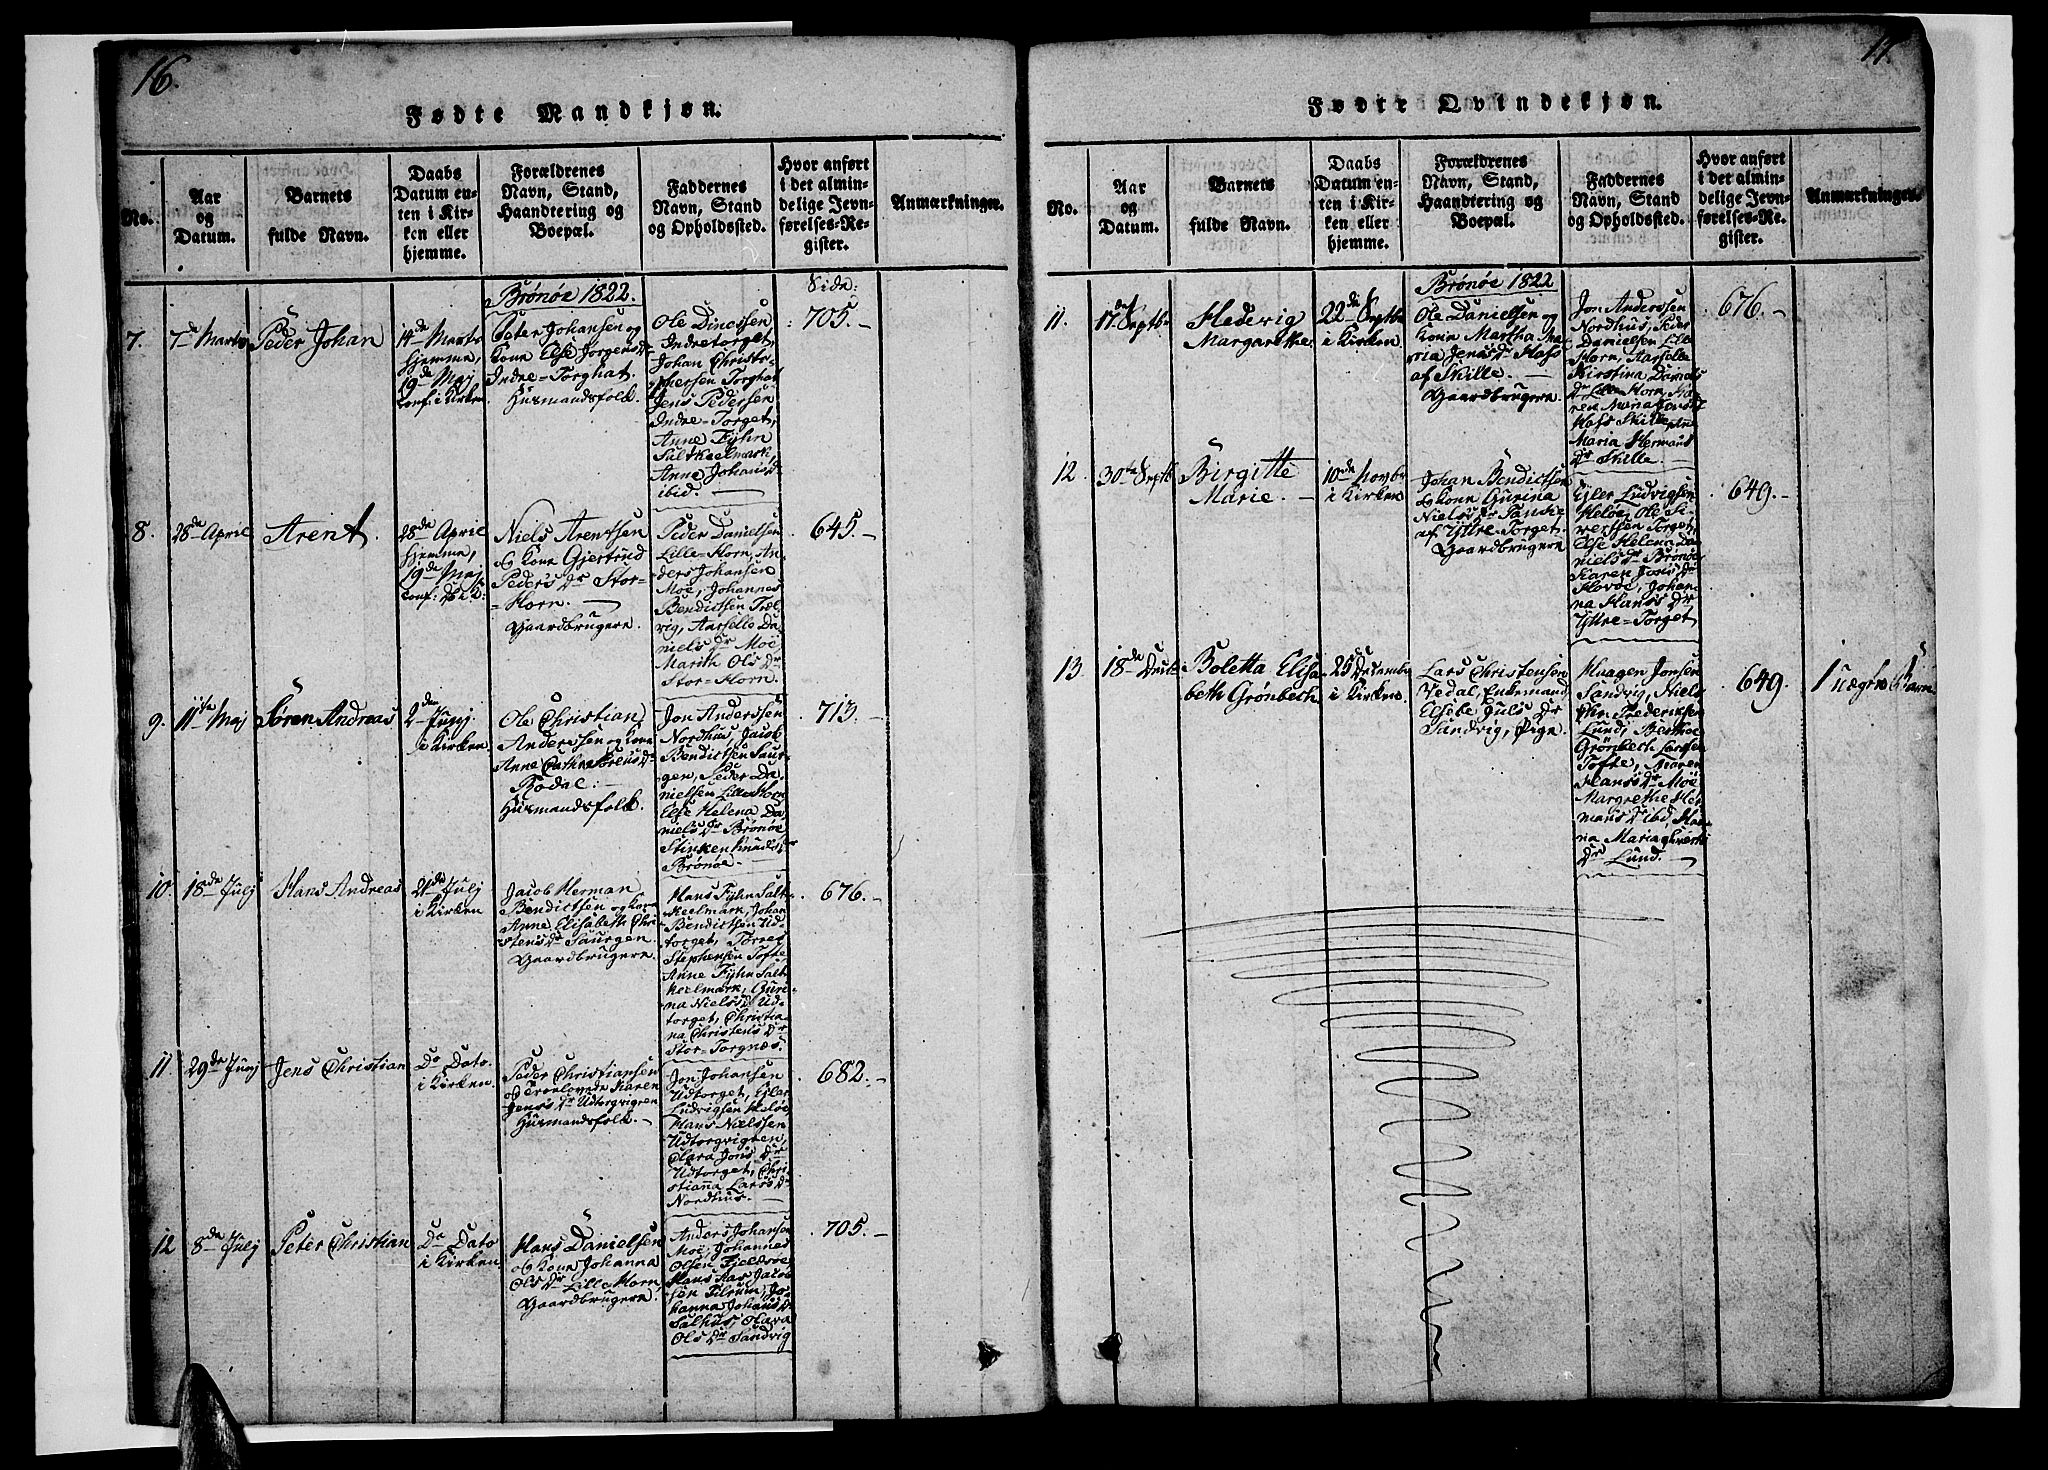 16.
Fødte Mandkjøn.
No.
Aar
og
Datum.
Barnets
fulde Navn.
Daabs
Datum en-
ten i Kir-
ken eller
hjemme.
Forældrenes
Navn, Stand,
Haandtering og
Boepæl.
Faddernes
Navn, Stand
og Opholdssted.
Hvor anført
i det almin-
delige Jevn-
førelses-Re-
gister.
Anmærkninger.
Brönöe 1822.
Side:
7.
7de Marts
Peder Johan
14de Marts
hjemme,
19de Maj
conf. i Kirken
Peter Johansen og
Kone Else Jørgensdr
Indre-Torghat.
Huusmandsfolk.
Ole Dinessen
Indretorget,
Johan Christo-
phersen Torghat
Jens Pedersen
Indre-Torget,
Anne Fyhn
Saltkeelmark,
Anne Johansdr
ibid.
705.
8.
28de April
Arent.
28de April
hjemme,
19de Maj
conf:
Niels Arentsen
& Kone Gjertrud
Peders Dr Stor-
Horn.
Gaardbrugere.
Peder Danielsen
Lille-Horn, An-
ders Johansen
Moe, Johannes
Bendictsen Træl-
vig, Aarselle Da-
niels Dr Moe
Marith Ols Dr
Stor-Horn.
645.
9.
11te Maj
Søren Andreas
2den Junj
i Kirken
Ole Christian
Anderssen og Kone
Anne Cathr. Sörensdr
Rodal.
Huusmandsfolk.
Jon Anderssen
Nordhus, Jacob
Bendictsen Saur-
gen, Peder Da-
nielsen Lille Horn
Else Helena Da-
niels Dr Brönöe
Stinken Knuds Dr
Brönöe.
713.
10.
18de Julj
Hans Andreas
21de Julj
i Kirken
Jacob Herman
Bendictsen og Kone
Anne Elisabeth Chri-
stens Dr Saurgen.
Gaardbrugere.
Hans Fyhn Salt-
keelmark, Johan
Bendictsen Ud-
torget, Torres
Stephensen Tofte,
Anne Fyhn Salt-
keelmark, Guri-
na Niels Dr Ud-
torget, Christia-
na Christens Dr
Stor-Torgnæs.
676.
11
29de Junj
Jens Christian
Do Dato
i Kirken.
Peder Christiansen
og Trolovede Karen
Jens Dr Udtorgvigen
Huusmandsfolk.
Jon Johansen
Udtorget, Ejler
Ludvigsen Heløe,
Hans Nielssen
Udtorgvigen,
Olara Jons Dr
Udtorget, Chri-
stianna Lars Dr
Nordhus.
682.
12
8de Julj
Peter Christian
Do Dato
i Kirken
Hans Danielsen
og Kone Johanna
Ols Dr Lille Horn
Gaardbrugere.
Anders Johansen
Moe, Johannes
Olsen Fjeldsøe,
Hans Has Jacob-
sen Tilrum, Jo-
hanna Johans Dr
Salhus, Olava
Ols Dr Sandvig
705.
17.
Fødte Qvindekjøn.
No.
Aar
og
Datum.
Barnets
fulde Navn.
Daabs
Datum en-
ten i Kir-
ken eller
hjemme.
Forældrenes
Navn, Stand,
Haandtering og
Boepæl.
Faddernes
Navn, Stand
og Opholdssted.
Hvor anført
i det almin-
delige Jevn-
førelses-Re-
gister.
Anmærkninger.
Brönöe 1822
11.
17de Septb.
Hedevig
Margarethe
22de Septb.
i Kirken
Ole Danielsen og
Kone Martha Ma-
ria Jens Dr Hass
af Skille.
Gaardbrugere.
Jon Anderssen
Nordhus, Peder
Danielsen Lille
Horn, Aarselle
Kirstina Daniels
Dr Lille Horn, Ka-
ren Anna Jens Dr
Hass Skille,
Maria Hermans
Dr Skille.
676.
12
30te Septb.
Birgitte
Marie.
10de Novbr
i Kirken
Johan Bendictsen
& Kone Gurina
Niels Dr Tandie
af Yttre-Torget.
Gaardbrugere
Ejler Ludvigsen
Heløe, Ole Si-
vertsen Torget,
Else Helena Da-
niels Dr Brönöe,
Karen Jons Dr
Hovøe, Johan-
na Hans Dr
Yttre-Torget
649.
13.
18de Decbr
Boletta Elisa
beth Grønbech
25 Decembr
i Kirken.
Lars Christensen
Vedal, Enkemand
Elsebe Juls Dr
Sandvig, Pige.
Haagen Jonsen
Sandvig, Niels
Chr. Frederiksen
Lund, Berthe
Grønbech Larssen
Tofte, Maren
Hans Dr Moe
Margrethe Her-
mans Dr ibid, Han-
na Maria
Dr Lund.
649.
1 uægte Barn